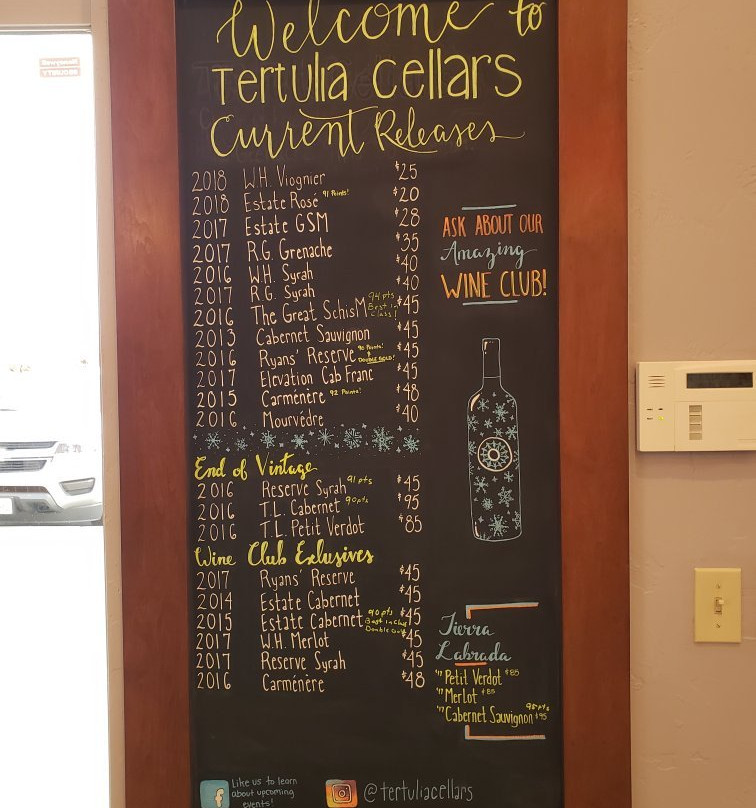 Welcome to
Tertulia Cellars
Current Releases
2018 W.H. Viognier $25
2018 Estate Rosé 91 Points! $20
2017 Estate GSM $28
2017 R.G. Grenache $35
2016 W.H. Syrah $40
2017 R.G. Syrah $40
2016 The Great SchisM 94 pts Best in Class! $45
2013 Cabernet Sauvignon $45
2016 Ryans' Reserve 90 Points! & DOUBLE GOLD! $45
2017 Elevation Cab Franc $45
2015 Carménère 92 Points! $48
2016 Mourvédre $40
End of Vintage
2016 Reserve Syrah 91 pts $45
2016 T.L. Cabernet 90 pts $95
2016 T.L. Petit Verdot $85
Wine Club Exlusives
2017 Ryans' Reserve $45
2014 Estate Cabernet $45
2015 Estate Cabernet 90 pts Best in Class Double Gold $45
2017 W.H. Merlot $45
2017 Reserve Syrah $45
2016 Carménère $48
ASK ABOUT OUR
Amazing
WINE CLUB!
Tierra
Labrada
'17 Petit Verdot $85
'17 Merlot $85
'17 Cabernet Sauvignon $95
f
Like us to learn
about upcoming
events!
@tertuliacellars